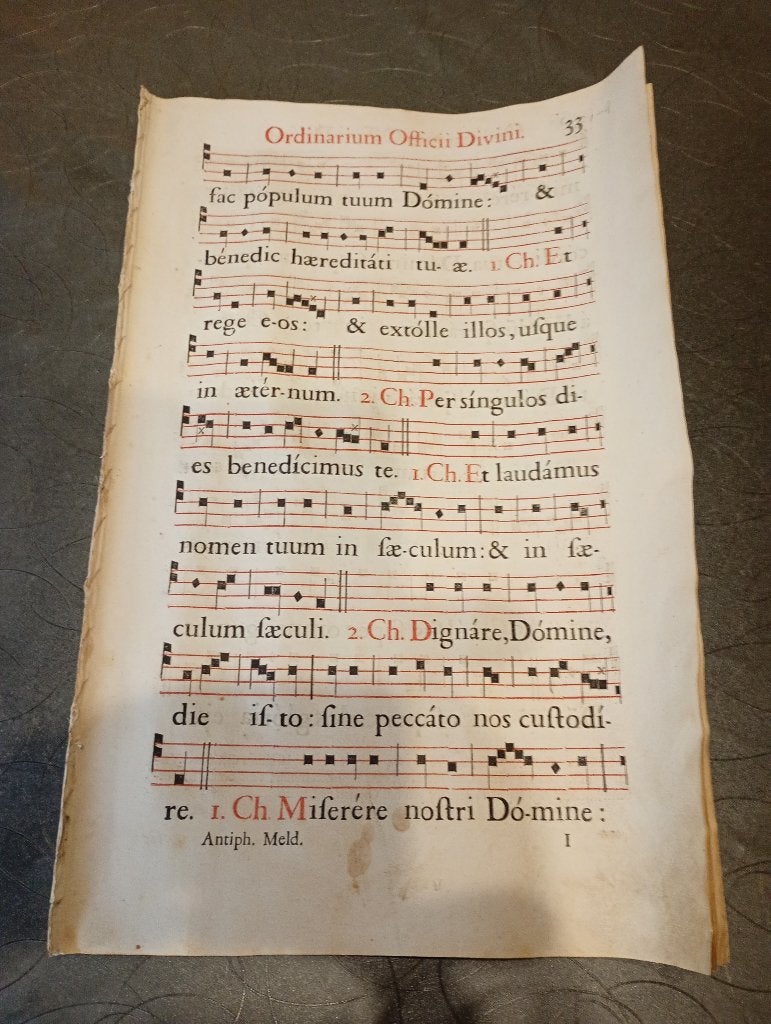 Ordinarium Officii Divini. 33
fac pópulum tuum Dómine: &
bénedic hæreditáti tu- æ. 1. Ch. Et
rege e-os: & extólle illos, uſque
in ætér-num. 2. Ch. Per síngulos di-
es benedícimus te. 1. Ch. Et laudámus
nomen tuum in ſæ-culum: & in ſæ-
culum ſæculi. 2. Ch. Dignáre, Dómine,
die iſ-to: ſine peccáto nos cuſtodí-
re. 1. Ch. Miſerére noſtri Dó-mine:
Antiph. Meld. I